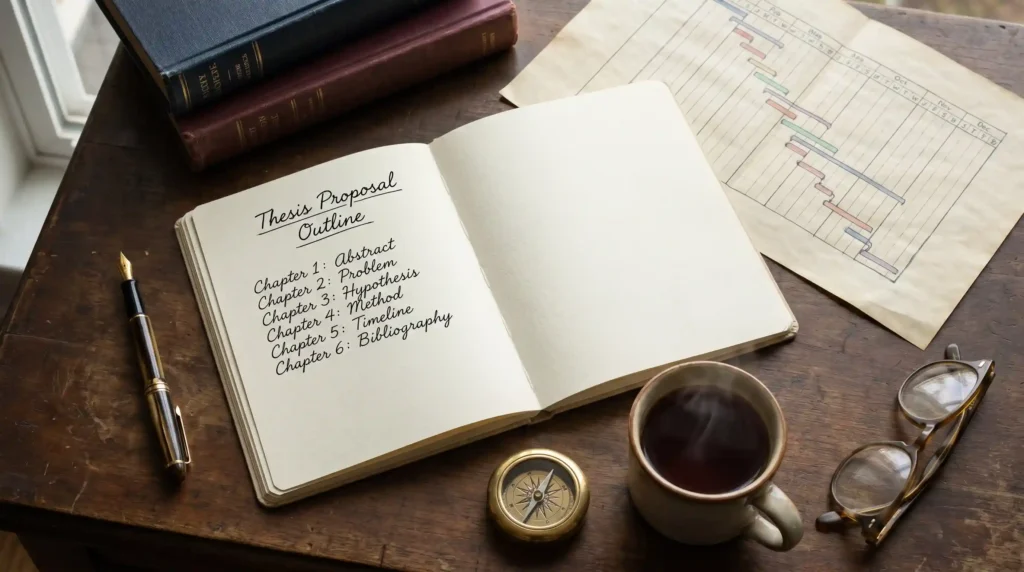 Thesis Proposal
Outline
Chapter 1: Abstract
Chapter 2: Problem
Chapter 3: Hypothesis
Chapter 4: Method
Chapter 5: Timeline
Chapter 6: Bibliography